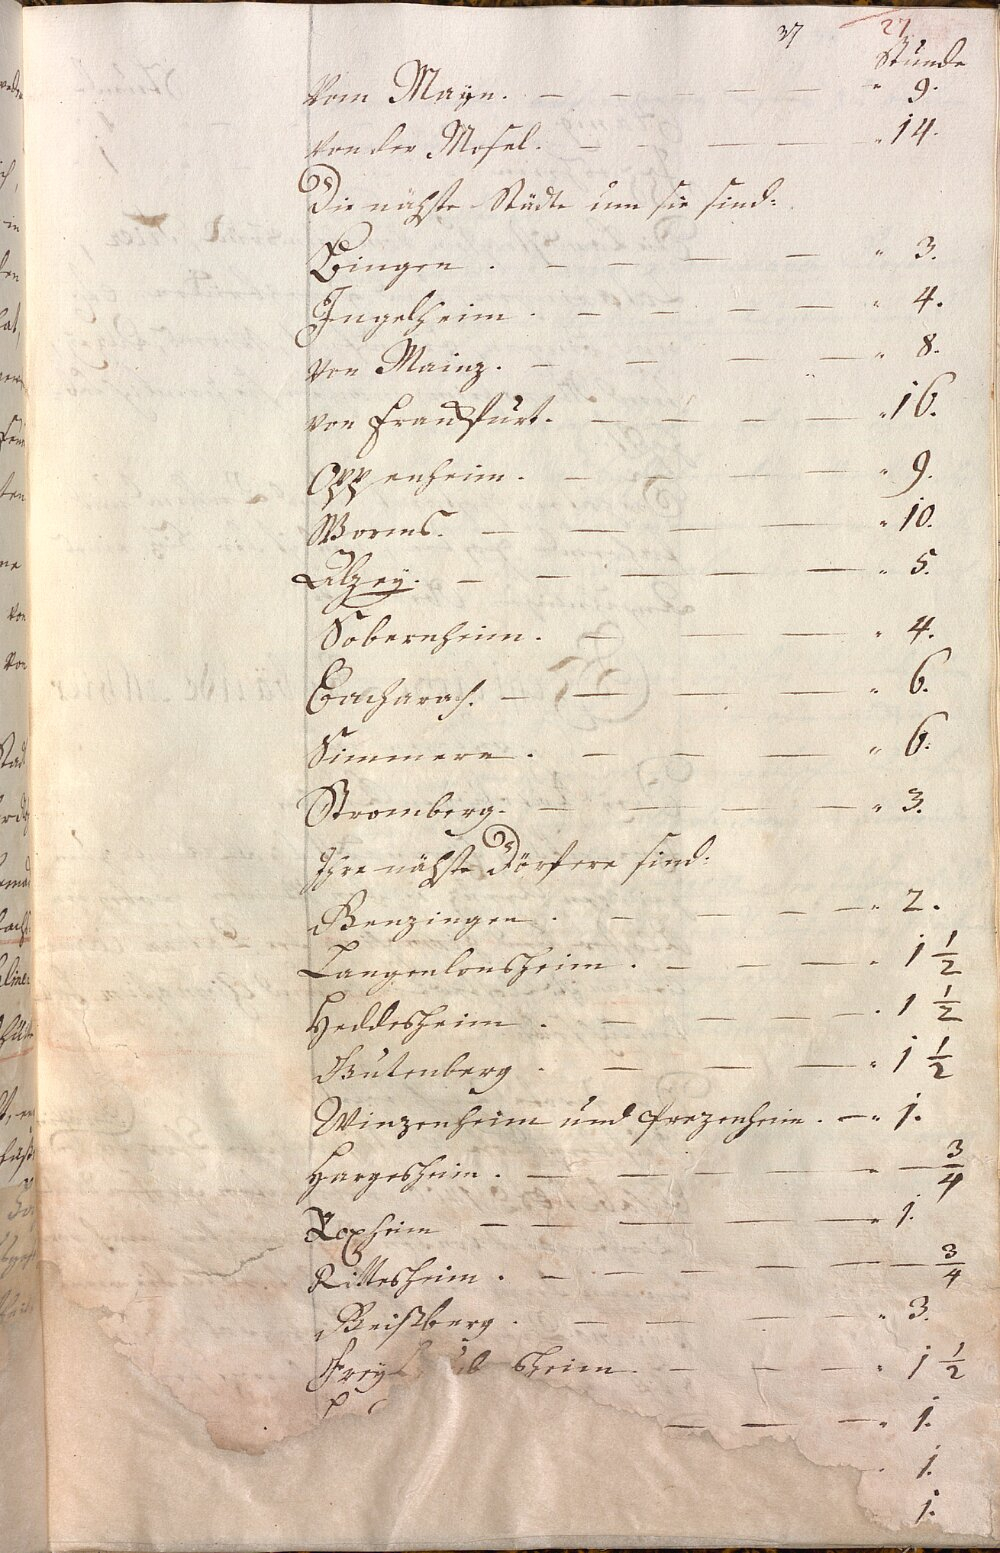 37 27
Stunde
Vom Mayn. — — — — — " 9.
von der Mosel. — — — — " 14.
Die nächste Städte um sie sind:
Bingen . — — — — — " 3.
Ingelheim . — — — — " 4.
von Mainz. — — — — " 8.
von Frankfurt. — — — — " 16.
Oppenheim. — — — — " 9.
Worms. — — — — " 10.
Alzey. — — — — — " 5.
Sobernheim. — — — — " 4.
Bacharach. — — — — " 6.
Simmern . — — — " 6.
Stromberg. — — — — " 3.
Ihre nächste Dörfere sind:
Genzingen . — — — — " 2.
Langenlonsheim . — — — " 1 1/2
Heddesheim . — — — — " 1 1/2
Gutenberg . — — — — " 1 1/2
Winzenheim und Prezenheim . — " 1.
Hargesheim . — — — — " — 3/4
Roxheim — — — — — " 1.
Rittesheim . — — — — — — 3/4
— — — — " 3.
Frey sheim — — — " 1 1/2
— — — " 1.
" 1.
1.